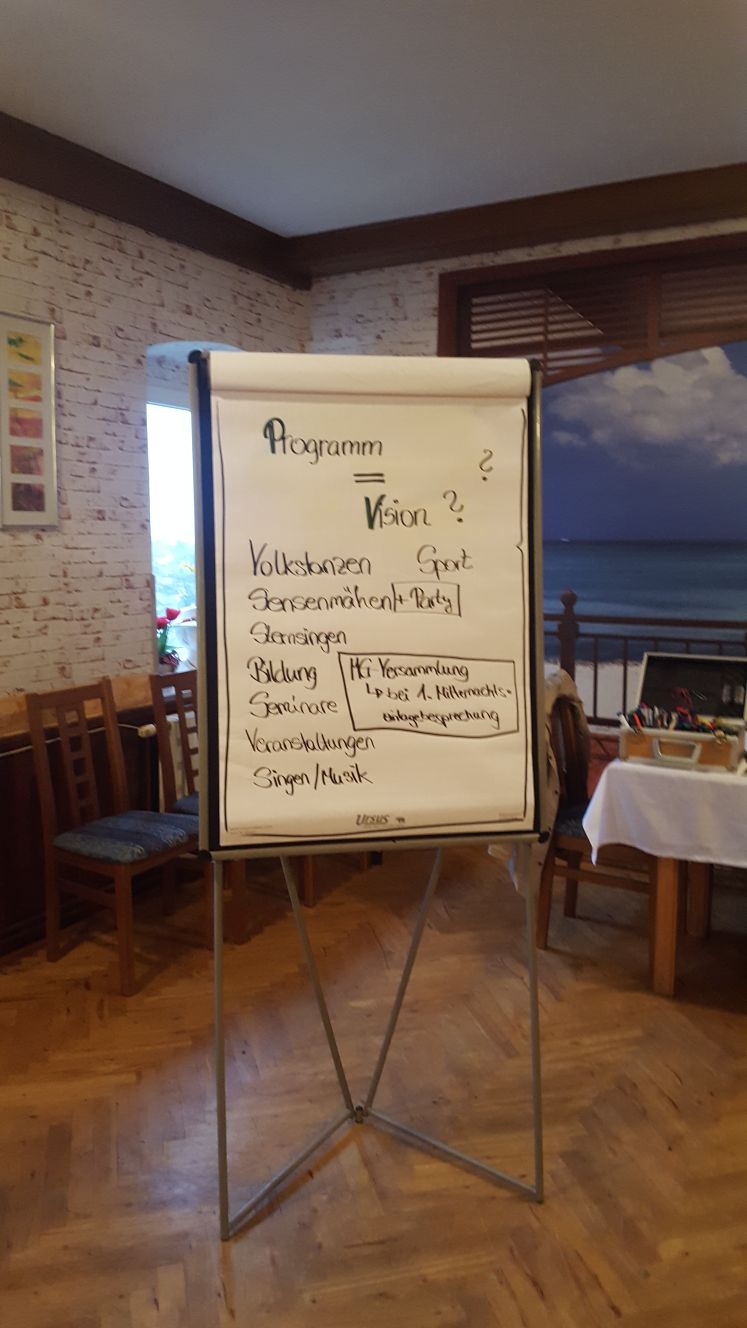 Programm
=
?
Vision ?
Volkstanzen Sport
Sensenmähen + Party
Sternsingen
Bildung
Seminare
MG-Versammlung
↳ bei 1. Mitternachts-
einlagebesprechung
Veranstaltungen
Singen/Musik
Ursus